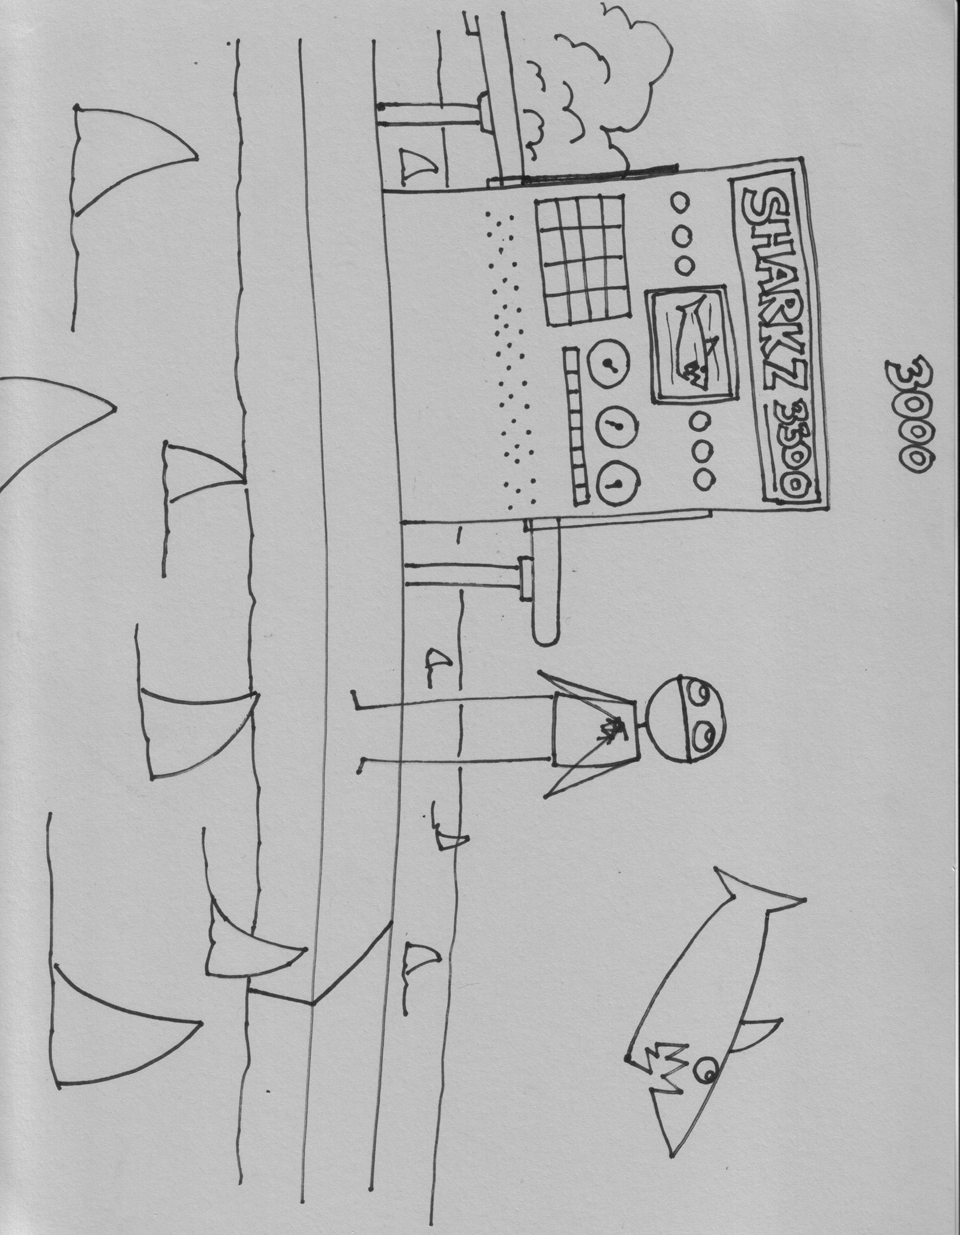 3000
SHARKZ 3500